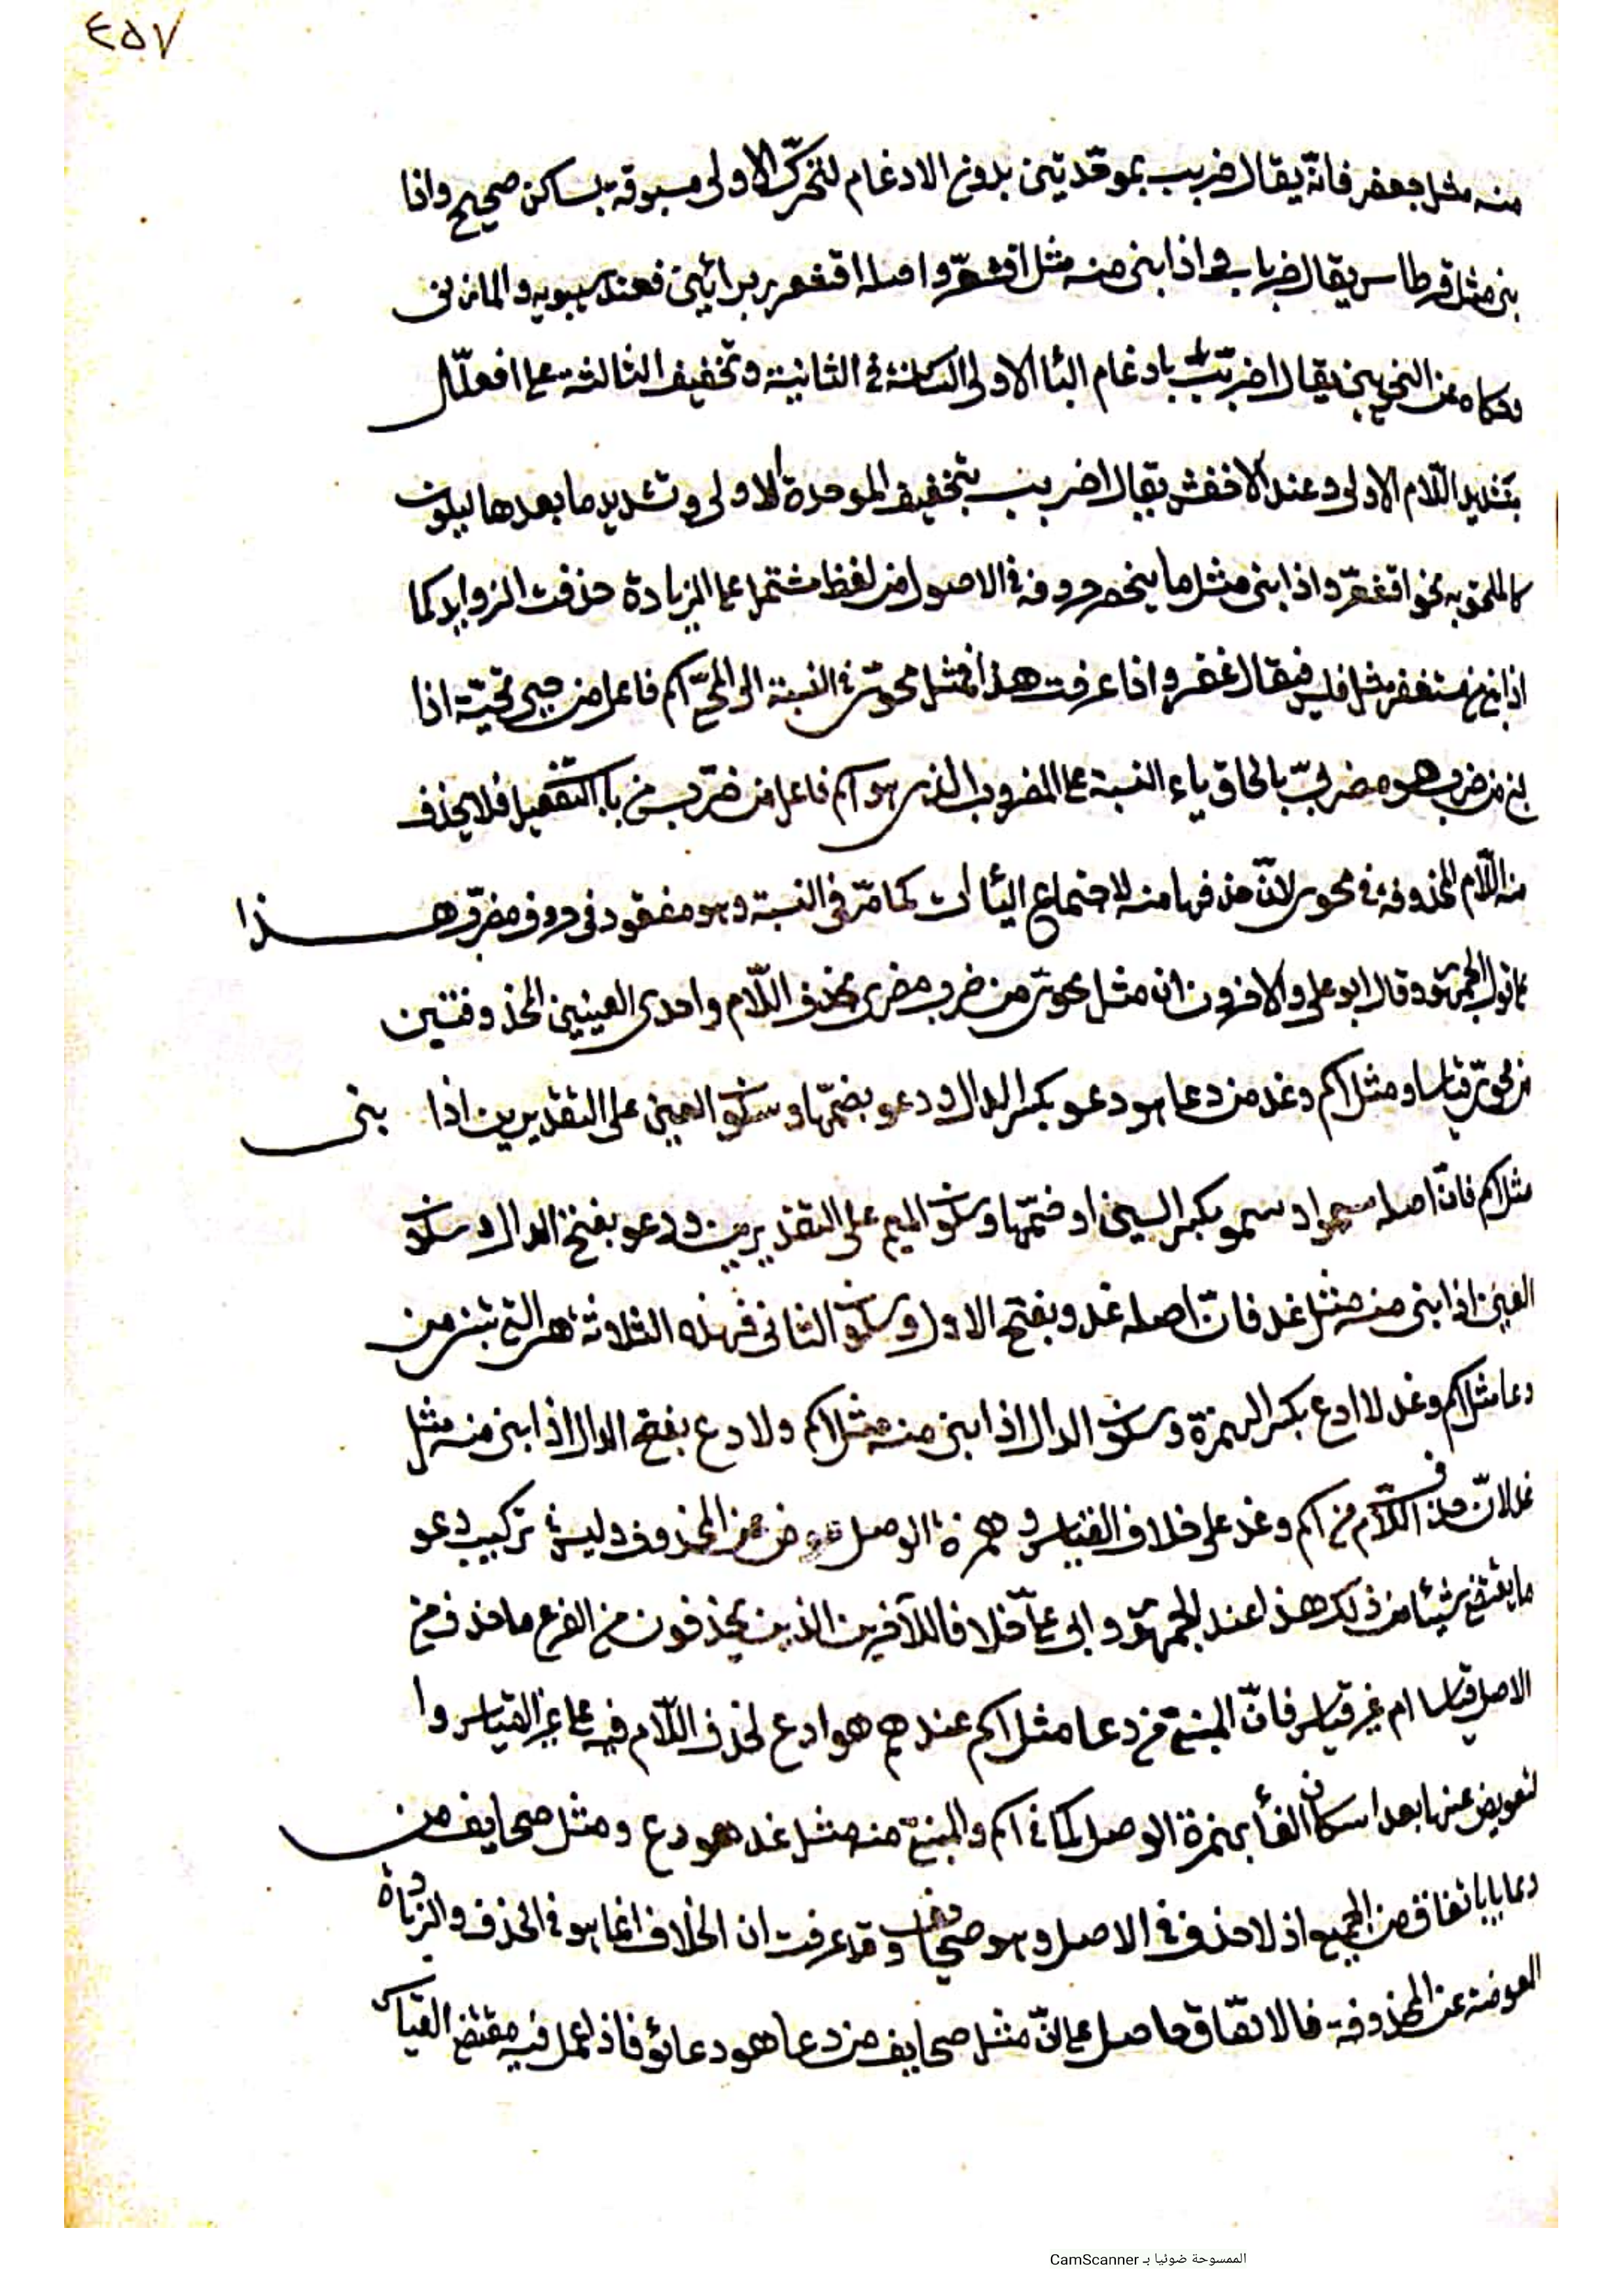 ٤٥٧
منه مثل جعفر فانّه يقال ضربب بموحّدتين بدون الادغام لتحرّك الاولى مسبوقة بساكن صحيح واذا
بنى مثل قرطاس يقال ضرباب واذا بنى منه مثل اقشعرّ واصله اقشعرر برائين فعند سيبويه والمازنى
وحكاه عن النحويين يقال اضربّب بادغام الباء الاولى الساكنة فى الثانية وتخفيف الثالثة على افعلّل
بتشديد اللّام الاولى وعند الاخفش يقال اضرببّ بتخفيف الموحدة الاولى وتشديد ما بعدها ليكون
كالملحق به نحو اقشعرّ واذا بنى مثل ما ينحصر حروفه فى الاصول من لفظ مشتمل على الزيادة حذفت الزوايد كما
اذا بنى من مستغفر مثل فلس فيقال غفر واذا عرفت هذا فمثل محوىّ فى النسبة الى المحيّى اسم فاعل من حيى تحيّة اذا
بنى من ضرب هو مضربىّ بالحاق ياء النسبة على المضرب الذى هو اسم فاعل من ضرّب من باب التفعيل فلا يحذف
منه اللّام المحذوفة فى محوى لانّ حذفها منه لاجتماع اليائات كما مرّ فى النسبة وهو مفقود فى حروف مضرّب هذا
على قول الجمهور وقال ابو على والاخرون ان مثل محوىّ من ضرب مضرى بحذف اللّام واحدى العينين المحذوفتين
من محوىّ قياسا ومثل اسم وغد من دعا هو دعو بكسر الدال ودعو بضمّها وسكون العين على التقديرين اذا بنى
مثل اسم فانّ اصله سمو او سمو بكسر السين او ضمّها وسكون الميم على التقديرين ودعو بفتح الدال وسكون
العين اذا بنى منه مثل غد فانّ اصله غدو بفتح الاول وسكون الثانى فهذه الثلاثة هى التى تبنى من
دعا مثل اسم وغد لا ادع بكسر الهمزة وسكون الدال اذا بنى منه مثل اسم ولا دع بفتح الدال اذا بنى منه مثل
غد لانّ حذف اللّام من اسم وغد على خلاف القياس وهمزة الوصل عوض عن المحذوف وليس فى تركيب دعو
ما يقتضى شيئا من ذلك هذا عند الجمهور وابى علىّ خلافا للآخرين الذين يحذفون من الفرع ما حذف من
الاصل قياسا ام غير قياس فانّ المبنىّ من دعا مثل اسم عندهم هو ادع لحذف اللّام فيه على غير القياس وا
لتعويض عنها بعد اسكان الفاء بهمزة الوصل كما فى اسم والمبنىّ منه مثل غد هو دع ومثل صحايف من
دعا يا باتفاق من الجميع اذ لا حذف فى الاصل وهو صحايف وقد عرفت ان الخلاف انما هو فى الحذف والزيادة
العوضة عن المحذوفة فالاتفاق حاصل على انّ مثل صحايف من دعا هو دعائو فاذا عمل فيه مقتضى القياس
الممسوحة ضوئيا بـ CamScanner